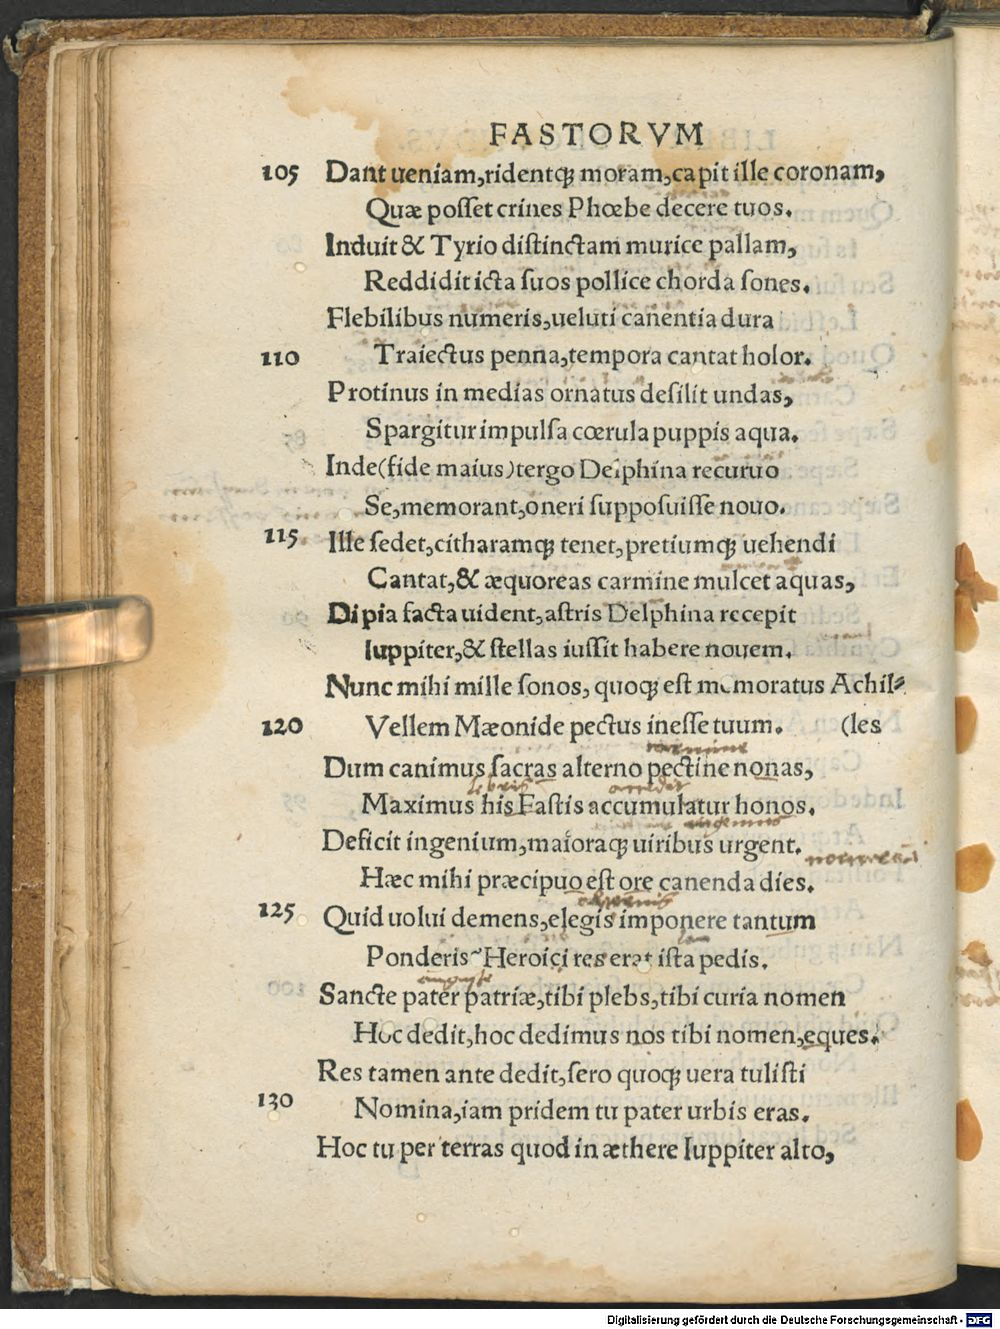 FASTORVM
105 Dant ueniam,ridentq; moram,capit ille coronam,
Quæ poſſet crines Phœbe decere tuos.
Induit & Tyrio diſtinctam murice pallam,
Reddidit icta ſuos pollice chorda ſones.
Flebilibus numeris,ueluti canentia dura
110 Traiectus penna,tempora cantat holor.
Protinus in medias ornatus deſilit undas,
Spargitur impulſa cœrula puppis aqua.
Inde(fide maius)tergo Delphina recuruo
Se,memorant,oneri ſuppoſuiſſe nouo.
115 Ille ſedet,citharamq; tenet,pretiumq; uehendi
Cantat,& æquoreas carmine mulcet aquas,
Di pia facta uident,aſtris Delphina recepit
Iuppiter,& ſtellas iuſſit habere nouem.
Nunc mihi mille ſonos, quoq; eſt memoratus Achil⸗
120 Vellem Mæonide pectus ineſſe tuum. (les
Dum canimus ſacras alterno pectine nonas,
Maximus his Faſtis accumulatur honos.
Deficit ingenium,maioraq; uiribus urgent.
Hæc mihi præcipuo eſt ore canenda dies.
125 Quid uolui demens,elegis imponere tantum
Ponderis~Heroici res erat iſta pedis.
Sancte pater patriæ,tibi plebs,tibi curia nomen
Hoc dedit,hoc dedimus nos tibi nomen,eques.
Res tamen ante dedit,ſero quoq; uera tuliſti
130 Nomina,iam pridem tu pater urbis eras.
Hoc tu per terras quod in æthere Iuppiter alto,
Digitalisierung gefördert durch die Deutsche Forschungsgemeinschaft - DFG